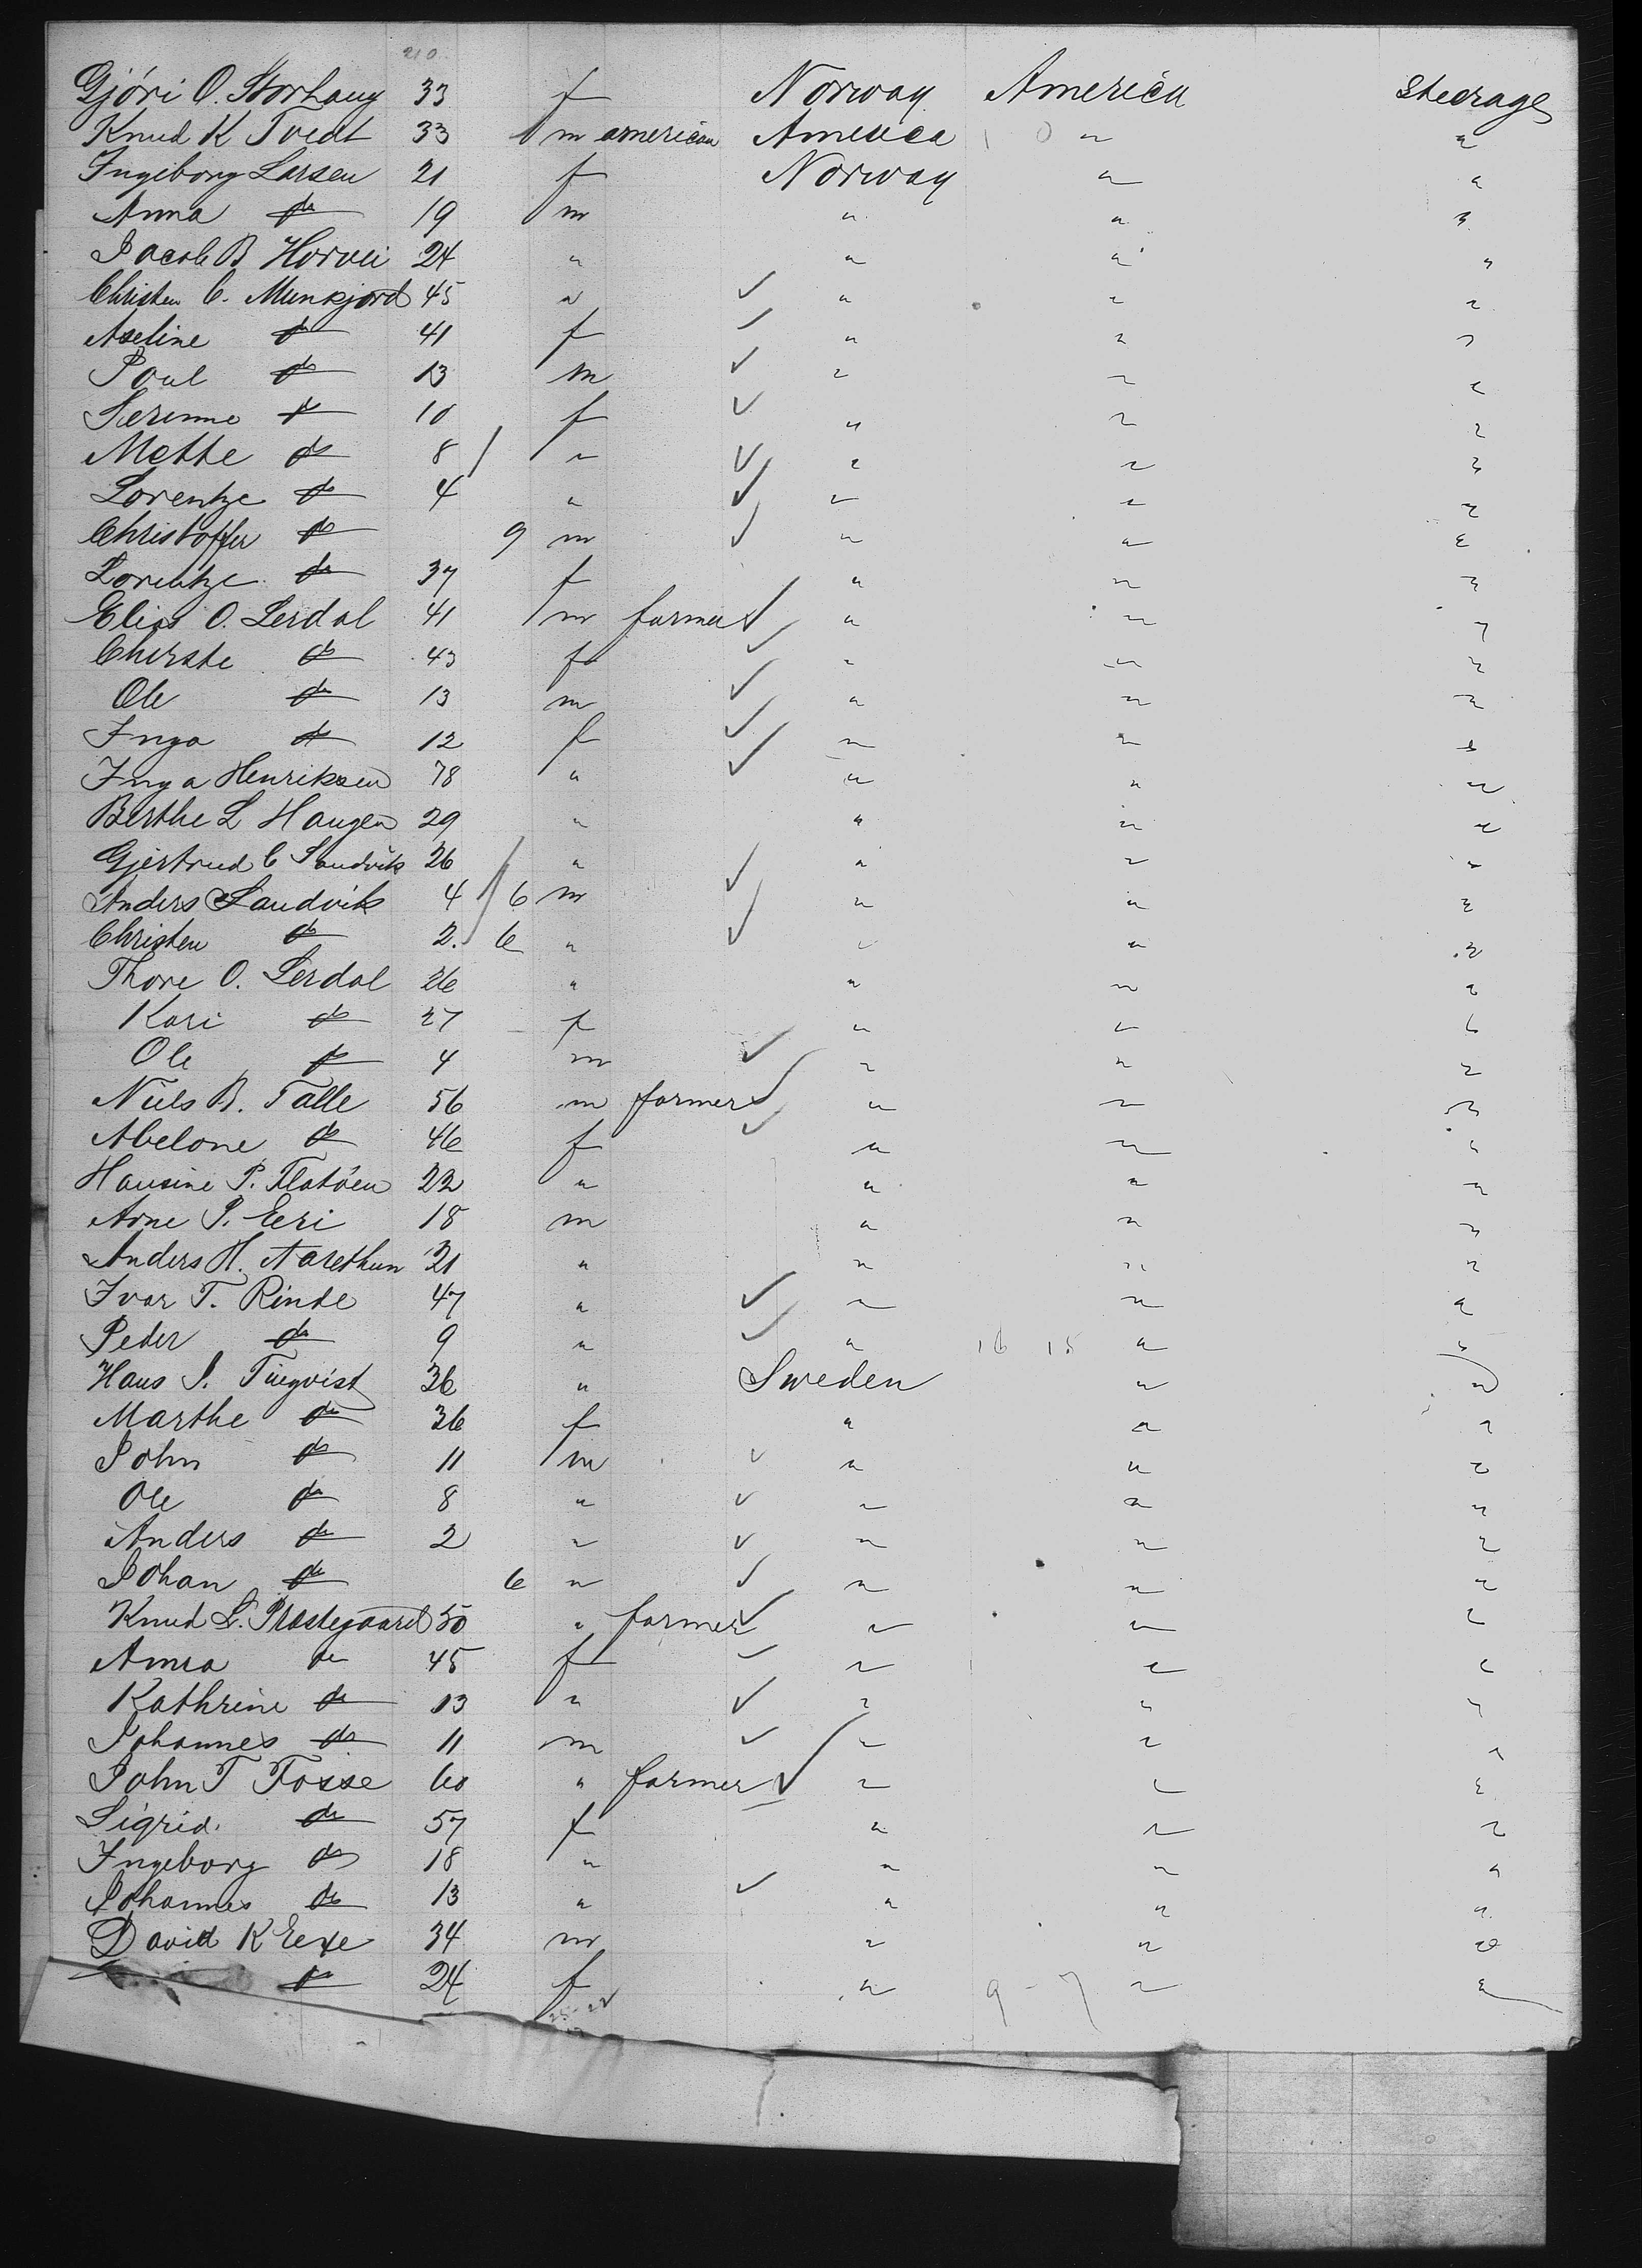 210
Gjóri O. Storhaug 33 f Norway America Steerage
Knud K Tvedt 33 m american America " "
Ingeborg Larsen 21 f Norway " "
Anna do 19 m " " "
Jacob B Horvei 24 " " " "
Christen C. Munkjord 45 " " " "
Aseline do 41 f " " "
Poul do 13 m " " "
Serinne do 10 f " " "
Mette do 8 " " " "
Lorentze do 4 " " " "
Christoffer do 9 m " " "
Lorentze do 37 f " " "
Elias O. Lerdal 41 m farmer " " "
Cherste do 43 f " " "
Ole do 13 m " " "
Inga do 12 f " " "
Inga Henriksen 78 " " " "
Berthe L Haugen 29 " " " "
Gjertrud C Sandvik 26 " " " "
Anders Sandvik 4 6 m " " "
Christen do 2. 6 " " " "
Thore O. Lerdal 26 " " " "
Kari do 27 f " " "
Ole do 4 m " " "
Niels B. Talle 56 m farmer " " "
Abelone do 46 f " " "
Hansine P. Flatöen 22 " " " "
Arne P. Eeri 18 m " " "
Anders H. Aarethun 21 " " " "
Ivar T. Rinde 47 " " " "
Peder do 9 " " 16 15 " "
Hans J. 36 " Sweden " "
Marthe do 36 f " " "
John do 11 m " " "
Ole do 8 " " " "
Anders do 2 " " " "
Johan do 6 " " " "
Knud L. Prestegaard 50 " farmer " " "
Anna do 45 f " " "
Kathrine do 13 " " " "
Johannes do 11 m " " "
John T Fosse 60 " farmer " " "
Sigrid. do 57 f " " "
Ingeborg do 18 " " " "
Johannes do 13 " " " "
David K 34 m " " "
do 24 f " 9 - 7 " "